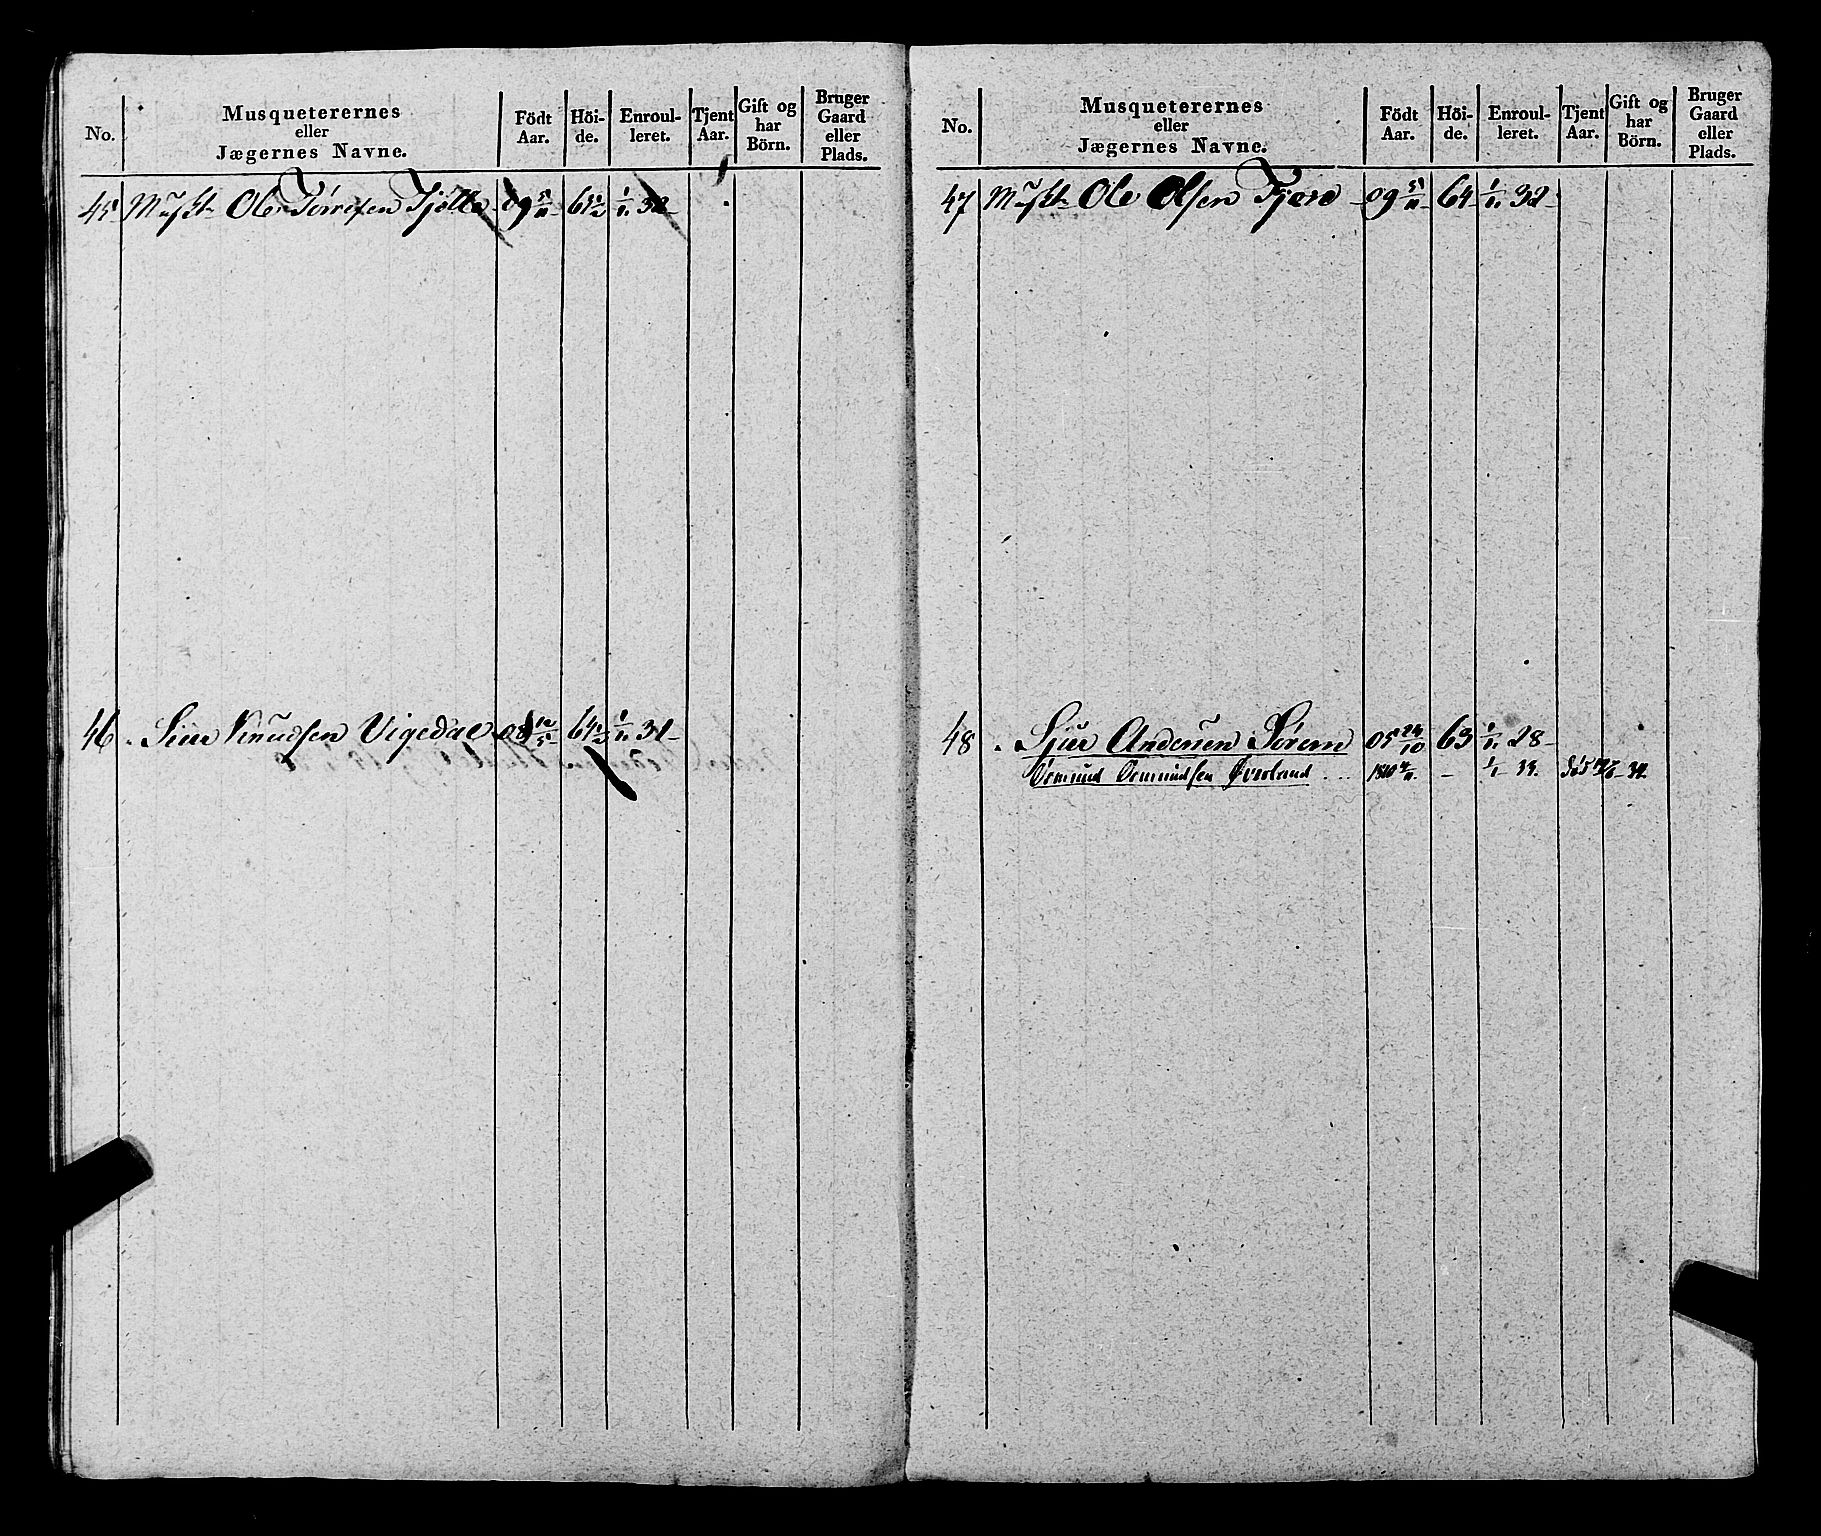 No.
Musqueterernes
eller
Jægernes Navne.
Födt
Aar.
Höi-
de.
Enroul-
leret.
Tjent
Aar.
Gift og
har
Börn.
Bruger
Gaard
eller
Plads.
45 Muskt Ole Tørresen Tjølle 09 5/11 63 1/2 1/11 32
46 Siur Knudsen Vigedal 08 10/5 64 1/2 1/11 31
No.
Musqueterernes
eller
Jægernes Navne.
Födt
Aar.
Höi-
de.
Enroul-
leret.
Tjent
Aar.
Gift og
har
Börn.
Bruger
Gaard
eller
Plads.
47 Muskt Ole Olsen Fjære 09 5/11 64 1/11 32
48 Sjur Andersen Sørem 05 24/10 63 1/11 28
Ormund Ormundsen Øverland 1810 4/11 1/1 33.